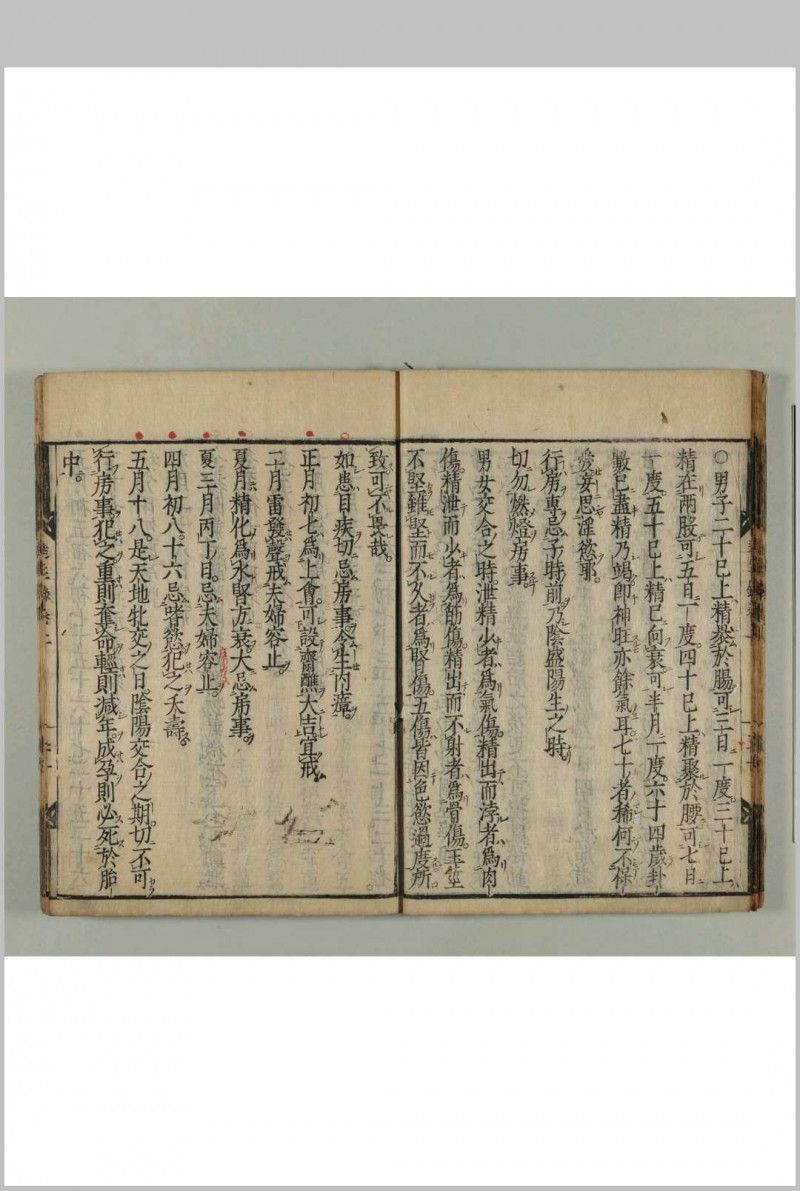 ○男子二十已上精撚於腸可三日一度三十已上
精在兩股可五日一度四十已上精聚於腰可七日
一度五十已上精已向衰可半月一度六十四歲卦
數已盡精乃竭即神旺亦餘氣耳七十者稀何不保
愛妄思淫慾耶
行房專忌子時前乃陰盛陽生之時
切勿燃燈房事
男女交合之時泄精少者為氣傷精出而浡者為肉
傷精泄而少者為筋傷精出而不射者為骨傷玉莖
不堅雖堅而不久者為腎傷五傷皆因色慾過度所
致可不畏哉
如患目疾切忌房事令生内瘴
正月初七為上會可設齋醮大吉宜戒
二月雷發聲戒夫婦容止
夏月精化為水腎方衰大忌房事
夏三月丙丁日忌夫婦容止
四月初八十六忌嗜慾犯之夭壽
五月十八是天地牝交之日陰陽交合之期切不可
行房事犯之重則奪命輕則減年成孕則必死於胎
中